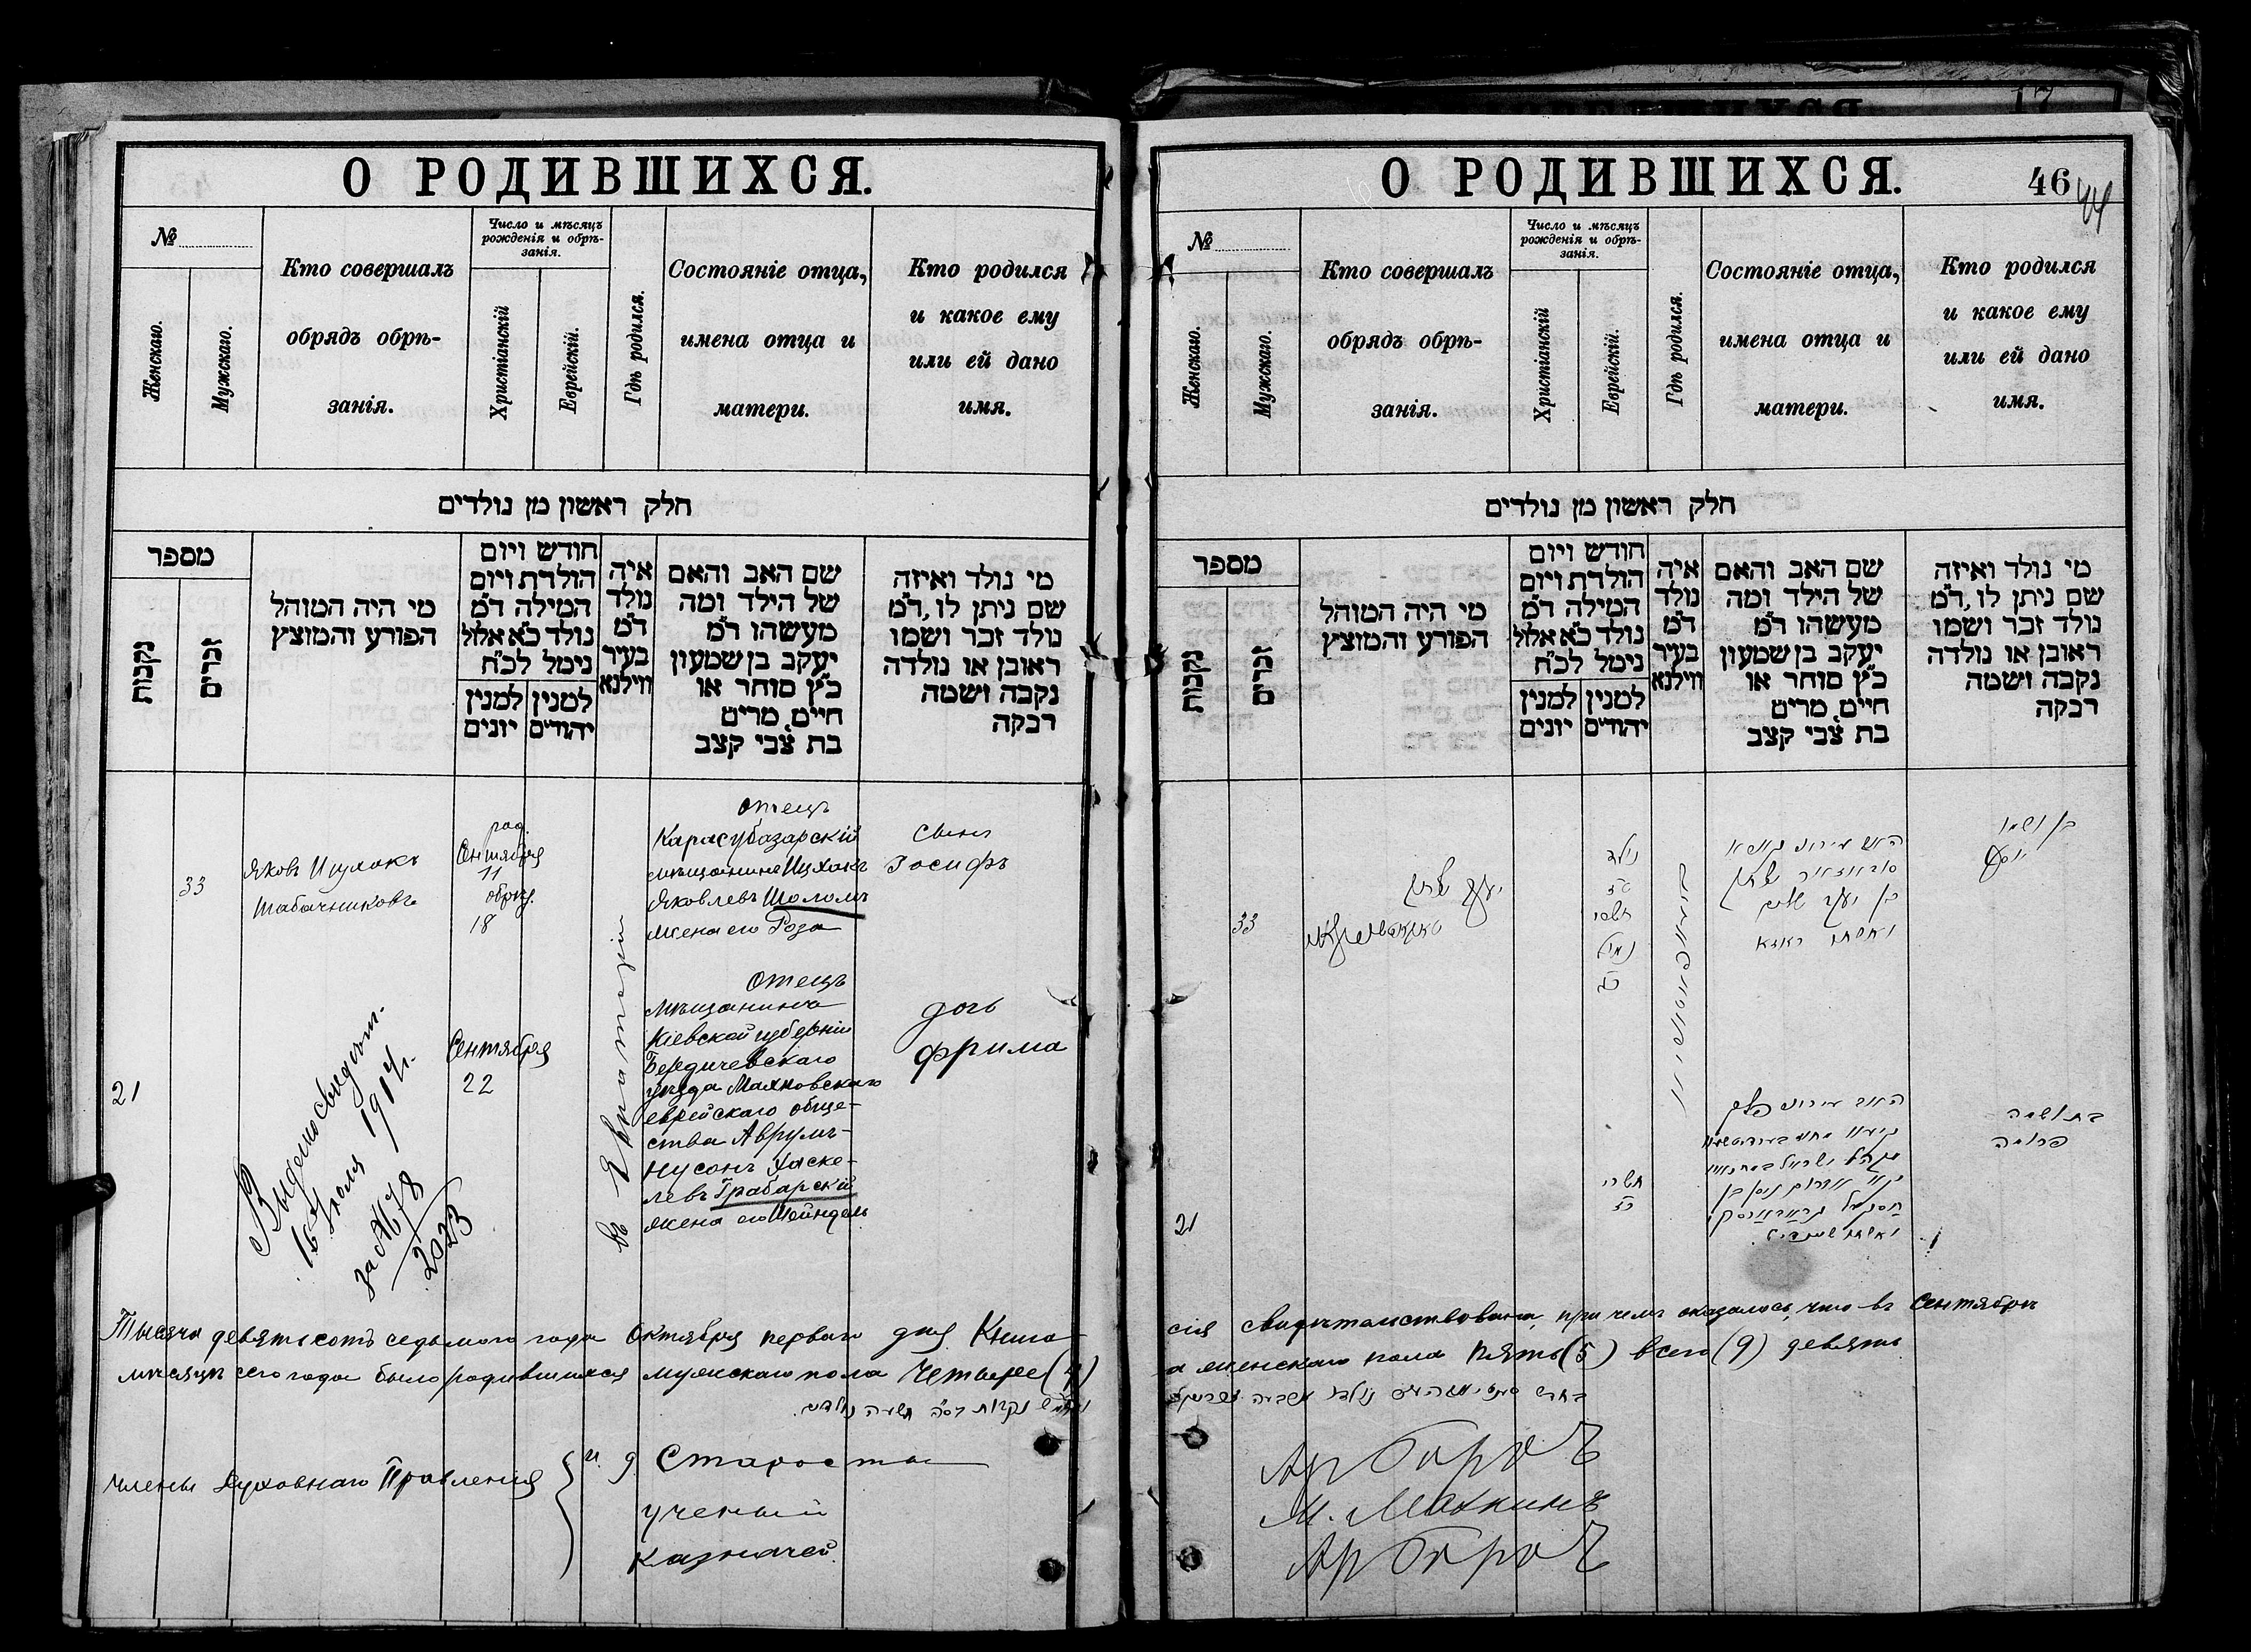 О РОДИВШИХСЯ.
№
Женскаго.
Мужскаго.
Кто совершалъ
обрядъ обрѣ-
занія.
Число и мѣсяцъ
рожденія и обрѣ-
занія.
Христіанскій
Еврейскій.
Гдѣ родился.
Состояніе отца,
имена отца и
матери.
Кто родился
и какое ему
или ей дано
имя.
חלק ראשון מן נולדים
מספר
נקבות
זכרים
מי היה המוהל
הפורע והמוצץ
חודש ויום
הולדת ויום
המילה ד״מ
נולד כ״א אלול
נימל לכ״ח
למנין למנין
יהודים יונים
איה
נולד
ד״מ
בעיר
ווילנא
שם האב והאם
של הילד ומה
מעשהו ד״מ
יעקב בן שמעון
כ״ץ סוחר או
חיים, מרים
בת צבי קצב
מי נולד ואיזה
שם ניתן לו, ד״מ
נולד זכר ושמו
ראובן או נולדה
נקבה ושמה
רבקה
33
Яковъ Ицхокъ
Табачниковъ
род.
Сентября
11
обрѣз.
18
въ Евпаторіи
отецъ
Карасубазарскій
мѣщанинъ Ицхокъ
Яковлевъ Шоломъ
жена его Роза
сынъ
Іосифъ
21
Выдано свидѣт.
16 Іюля 1914 г.
за № 78
2023
Сентября
22
Отецъ
мѣщанинъ
Кіевской губерніи
Бердичевскаго
уѣзда Махновскаго
еврейскаго обще-
ства Аврумъ-
Нусонъ Хаске-
левъ Грабарскій
жена его Шейндель
дочь
Фрима
Тысяча девятьсотъ седьмого года Октября перваго дня Книга
мѣсяцѣ сего года было родившихся мужскаго пола Четыре (4)
Члены Духовнаго Правленія
и. д. Староста
ученый
казначей
О РОДИВШИХСЯ.
46
44
№
Женскаго.
Мужскаго.
Кто совершалъ
обрядъ обрѣ-
занія.
Число и мѣсяцъ
рожденія и обрѣ-
занія.
Христіанскій
Еврейскій.
Гдѣ родился.
Состояніе отца,
имена отца и
матери.
Кто родился
и какое ему
или ей дано
имя.
חלק ראשון מן נולדים
מספר
נקבות
זכרים
מי היה המוהל
הפורע והמוצץ
חודש ויום
הולדת ויום
המילה ד״מ
נולד כ״א אלול
נימל לכ״ח
למנין למנין
יהודים יונים
איה
נולד
ד״מ
בעיר
ווילנא
שם האב והאם
של הילד ומה
מעשהו ד״מ
יעקב בן שמעון
כ״ץ סוחר או
חיים, מרים
בת צבי קצב
מי נולד ואיזה
שם ניתן לו, ד״מ
נולד זכר ושמו
ראובן או נולדה
נקבה ושמה
רבקה
33
יעקב יצחק
נולד
תשרי
נימול
בן יעקב שלום
ואשתו ראזא
בן ושמו
יוסף
21
תשרי
בת ושמה
פרומה
сія свидѣтельствована, при чемъ оказалось, что въ Сентябрѣ
а женскаго пола Пять (5) всего (9) девять
Ар Борохъ
М. Махкинъ
Ар Борохъ